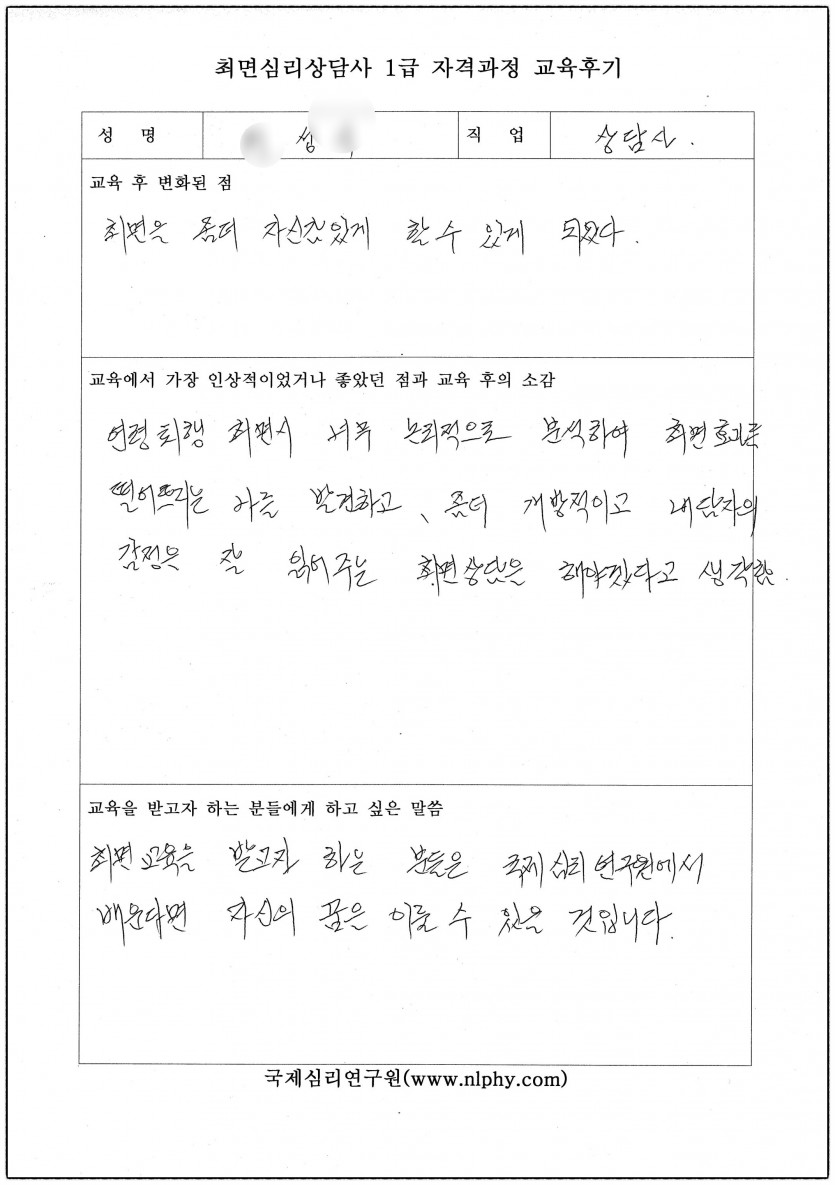 최면심리상담사 1급 자격과정 교육후기
성 명 성 직 업 상담사.
교육 후 변화된 점
최면을 좀더 자신감있게 할 수 있게 되었다.
교육에서 가장 인상적이었거나 좋았던 점과 교육 후의 소감
연령퇴행 최면시 너무 논리적으로 분석하여 최면효과를
떨어뜨리는 나를 발견하고, 좀더 개방적이고 내담자의
감정을 잘 읽어주는 최면상담을 해야겠다고 생각함.
교육을 받고자 하는 분들에게 하고 싶은 말씀
최면교육을 받고자 하는 분들은 국제심리연구원에서
배운다면 자신의 꿈을 이룰 수 있을 것입니다.
국제심리연구원(www.nlphy.com)